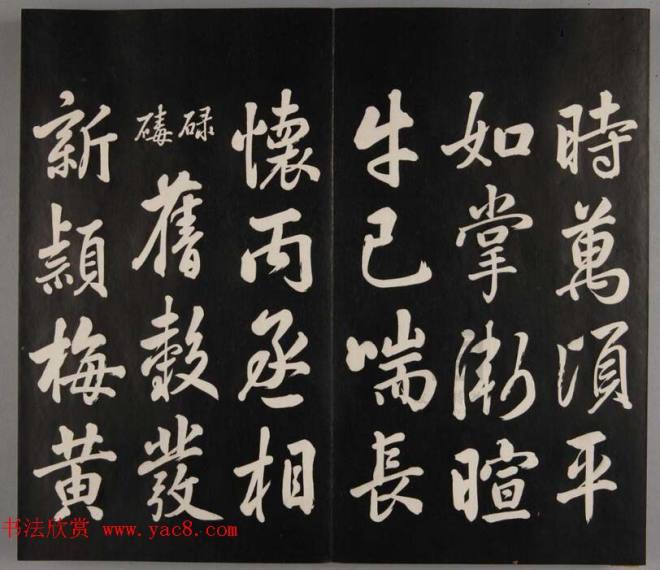 時萬頃平
如掌漸暄
牛已喘長
懷丙丞相
碌
碡舊穀發
新潁梅黃
书法欣赏 www.yac8.com